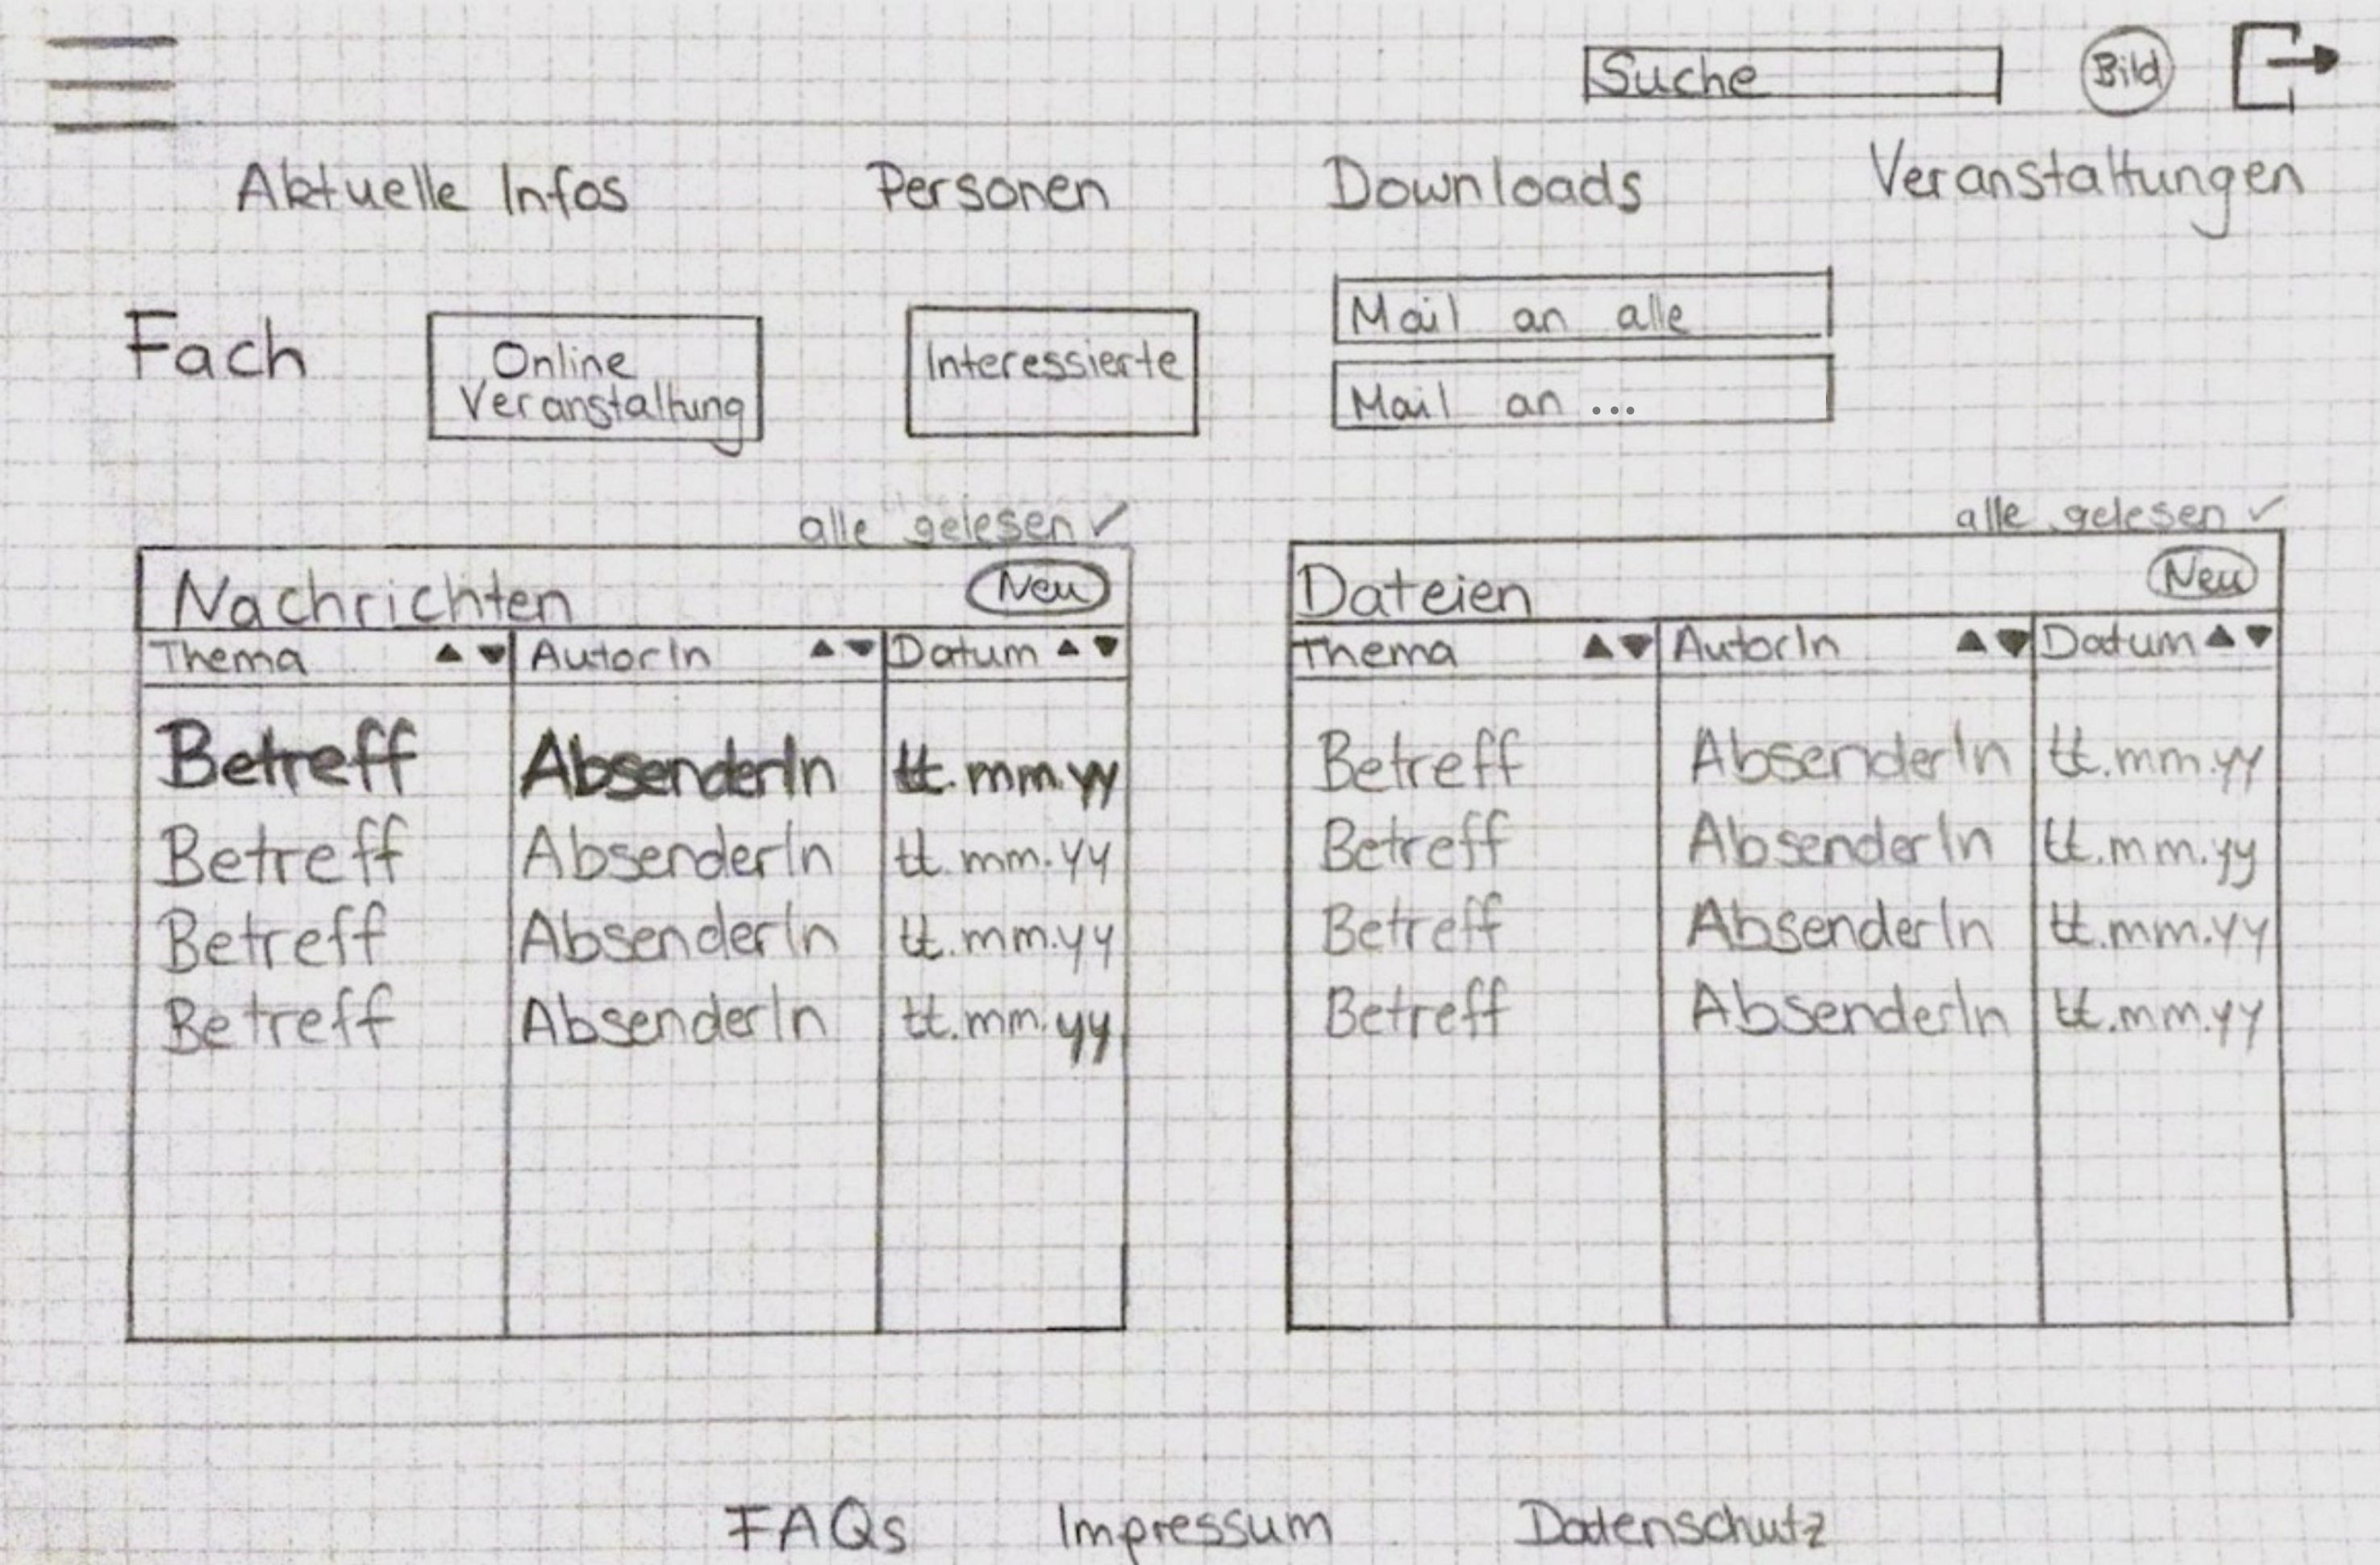 Suche Bild
Aktuelle Infos Personen Downloads Veranstaltungen
Fach
Online
Veranstaltung
Interessierte
Mail an alle
Mail an ...
alle gelesen ✓
Nachrichten Neu
Thema ▲▼ AutorIn ▲▼ Datum ▲▼
Betreff AbsenderIn tt.mm.yy
Betreff AbsenderIn tt.mm.yy
Betreff AbsenderIn tt.mm.yy
Betreff AbsenderIn tt.mm.yy
alle gelesen ✓
Dateien Neu
Thema ▲▼ AutorIn ▲▼ Datum ▲▼
Betreff AbsenderIn tt.mm.yy
Betreff AbsenderIn tt.mm.yy
Betreff AbsenderIn tt.mm.yy
Betreff AbsenderIn tt.mm.yy
FAQs Impressum Datenschutz